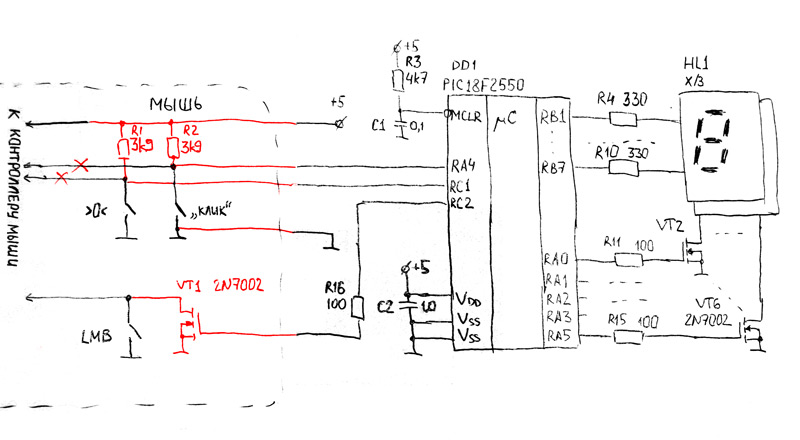 К КОНТРОЛЛЕРУ МЫШИ
МЫШЬ
+5
R1
3к9
R2
3к9
>0<
„КЛИК“
VT1 2N7002
LMB
R16
100
+5
R3
4к7
C1
0,1
+5
C2
1,0
DD1
PIC18F2550
MCLR
μC
RA4
RC1
RC2
VDD
VSS
VSS
RB1
RB7
RA0
RA1
RA2
RA3
RA5
R4 330
R10 330
R11 100
R15 100
HL1
X/3
VT2
VT6
2N7002